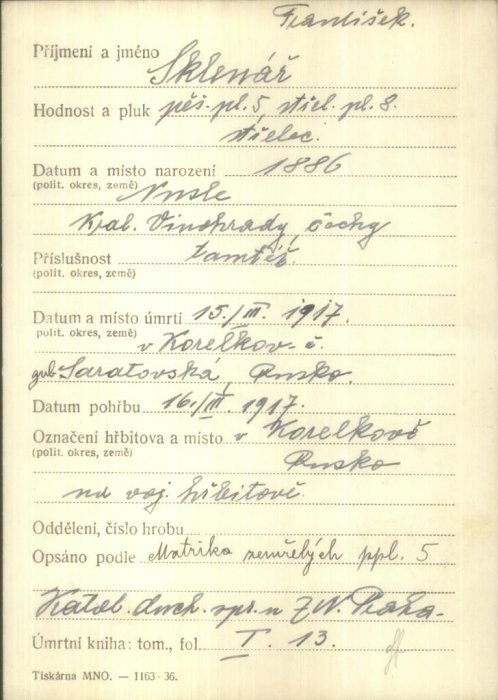 František.
Příjmení a jméno Sklenář
Hodnost a pluk pěš. pl. 5, střel. pl. 8.
střelec.
Datum a místo narození 1886
(polit. okres, země) Nusle
Král. Vinohrady, Čechy
Příslušnost tamtéž.
(polit. okres, země)
Datum a místo úmrtí 15./III. 1917.
polit. okres, země) v Korelkov-ě.
gub Saratovská, Rusko.
Datum pohřbu 16./III. 1917.
Označení hřbitova a místo v Korelkově
(polit. okres, země) Rusko
na voj. hřbitově.
Oddělení, číslo hrobu
Opsáno podle Matrika zemřelých ppl. 5
Katol. duch. spr. u ZVV. Praha.
Úmrtní kniha: tom., fol. I. 13.
Tiskárna MNO. — 1163-36.